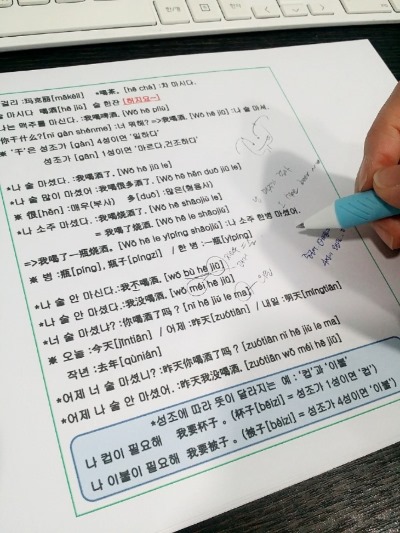 걸리 :玛克丽[mǎkèlì] *喝茶. [hē chá] :차 마시다.
술 마시다 喝酒[hē jiǔ] 술 한잔 [허지요~]
나는 맥주를 마신다. :我喝啤酒. [Wǒ hē píjiǔ]
你干什么?[nǐ gàn shénme] :너 뭐해? =>我喝酒. [Wǒ hē jiǔ] :나 술 마셔.
※ '干'은 성조가 [gàn] 4성이면 '일하다'
성조가 [gān] 1성이면 '마르다,건조하다'
*나 술 마셨다. :我喝酒了. [Wǒ hē jiǔ le]
*나 술 많이 마셨어 :我喝很多酒了. [Wǒ hē hěn duō jiǔ le]
※ 很[hěn] :매우(부사) 多[duō] :많은(형용사)
*나 소주 마셨다. :我喝烧酒了. [Wǒ hē shāojiǔ le]
= 我喝了烧酒. [Wǒ hē le shāojiǔ]
=>我喝了一瓶烧酒. [Wǒ hē le yìpíng shāojiǔ] :나 소주 한병 마셨어.
※ 병 :瓶[píng], 瓶子[píngzi] / 한 병 :一瓶[yìpíng]
*나 술 안 마신다. :我不喝酒. [wǒ bù hē jiǔ]
*나 술 안 마셨다. :我没喝酒. [wǒ méi hē jiǔ]
*너 술 마셨니? :你喝酒了吗? [nǐ hē jiǔ le ma]
※ 오늘 :今天[jīntiān] / 어제 :昨天[zuótiān] / 내일 :明天[míngtiān]
작년 :去年[qùnián]
*어제 너 술 마셨니? :昨天你喝酒了吗? [zuótiān nǐ hē jiǔ le ma]
*어제 나 술 안 마셨어. :昨天我没喝酒. [zuótiān wǒ méi hē jiǔ]
*성조에 따라 뜻이 달라지는 예 : '컵'과 '이불'
나 컵이 필요해 我要杯子。(杯子[bēizi] = 성조가 1성이면 '컵')
나 이불이 필요해 我要被子。(被子[bèizi] = 성조가 4성이면 '이불')